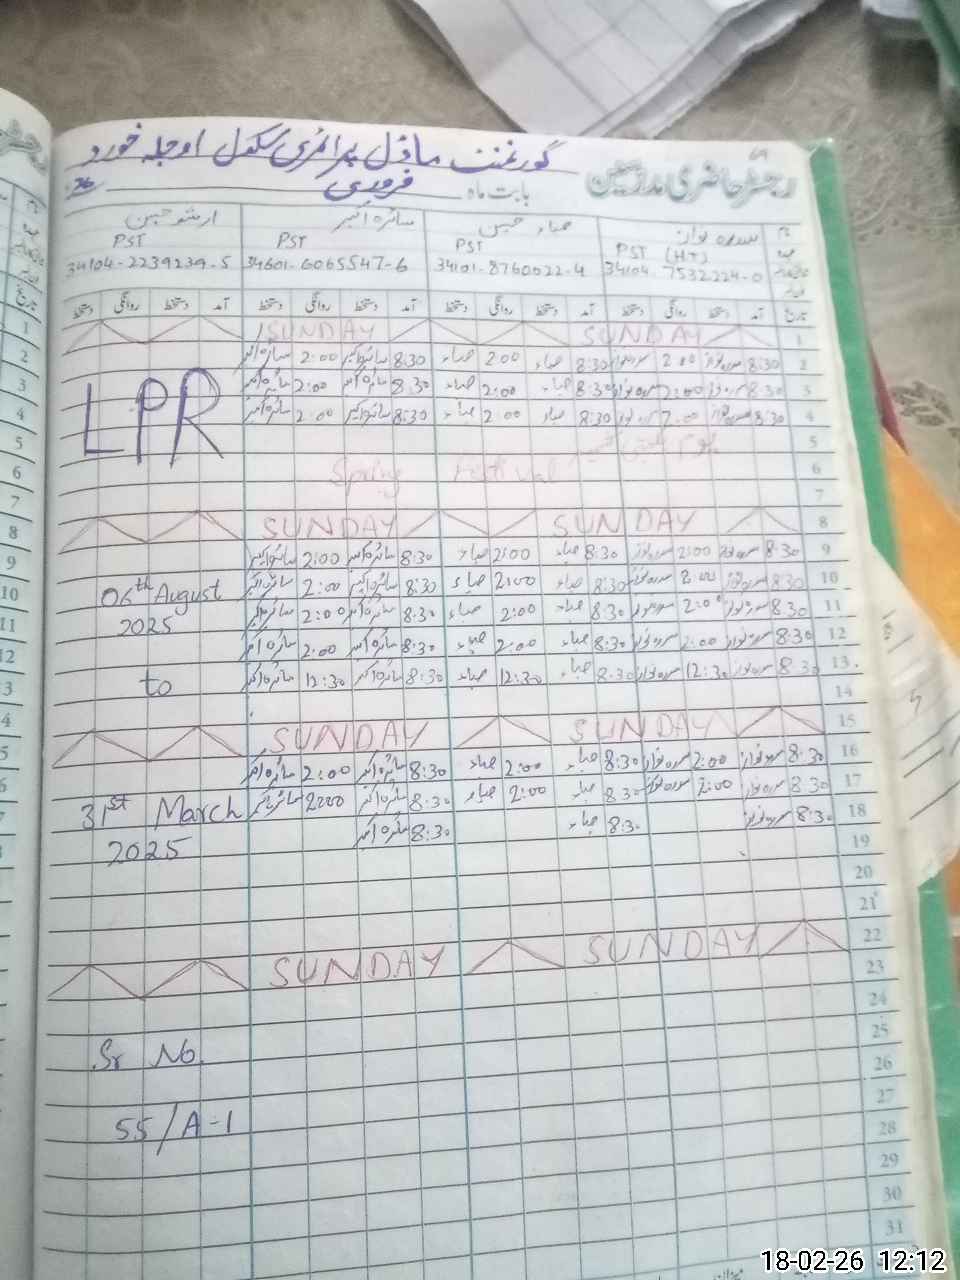 گورنمنٹ ماڈل پرائمری سکول اوجلہ خورد
رجسٹر حاضری مدرسین
بابت ماہ فروری 26
سدرہ نواز صباء حسین سائرہ اکبر ارشد حسین
PST (HT) PST PST PST
34104-7532224-0 34101-8760022-4 34601-6065547-6 34104-2239239-5
تاریخ آمد دستخط روانگی دستخط آمد دستخط روانگی دستخط آمد دستخط روانگی دستخط آمد دستخط روانگی دستخط
1 SUNDAY SUNDAY
2 8:30 سدرہ نواز 2:00 سدرہ نواز 8:30 صباء 2:00 صباء 8:30 سائرہ اکبر 2:00 سائرہ اکبر
3 8:30 سدرہ نواز 2:00 سدرہ نواز 8:30 صباء 2:00 صباء 8:30 سائرہ اکبر 2:00 سائرہ اکبر
4 8:30 سدرہ نواز 2:00 سدرہ نواز 8:30 صباء 2:00 صباء 8:30 سائرہ اکبر 2:00 سائرہ اکبر
LPR
5 یوم یکجہتی کشمیر
6 Spring Festival
7
8 SUNDAY SUNDAY
9 8:30 سدرہ نواز 2:00 سدرہ نواز 8:30 صباء 2:00 صباء 8:30 سائرہ اکبر 2:00 سائرہ اکبر
10 8:30 سدرہ نواز 2:00 سدرہ نواز 8:30 صباء 2:00 صباء 8:30 سائرہ اکبر 2:00 سائرہ اکبر
06th August
11 8:30 سدرہ نواز 2:00 سدرہ نواز 8:30 صباء 2:00 صباء 8:30 سائرہ اکبر 2:00 سائرہ اکبر
2025
12 8:30 سدرہ نواز 2:00 سدرہ نواز 8:30 صباء 2:00 صباء 8:30 سائرہ اکبر 2:00 سائرہ اکبر
13 8:30 سدرہ نواز 12:30 سدرہ نواز 8:30 صباء 12:30 صباء 8:30 سائرہ اکبر 12:30 سائرہ اکبر
to
14
15 SUNDAY SUNDAY
16 8:30 سدرہ نواز 2:00 سدرہ نواز 8:30 صباء 2:00 صباء 8:30 سائرہ اکبر 2:00 سائرہ اکبر
17 8:30 سدرہ نواز 2:00 سدرہ نواز 8:30 صباء 2:00 صباء 8:30 سائرہ اکبر 2:00 سائرہ اکبر
31st March
18 8:30 سدرہ نواز 8:30 صباء 8:30 سائرہ اکبر
2025
19
20
21
22 SUNDAY SUNDAY
23
24
25
Sr No.
26
27
55/A-1
28
29
30
31
18-02-26 12:12